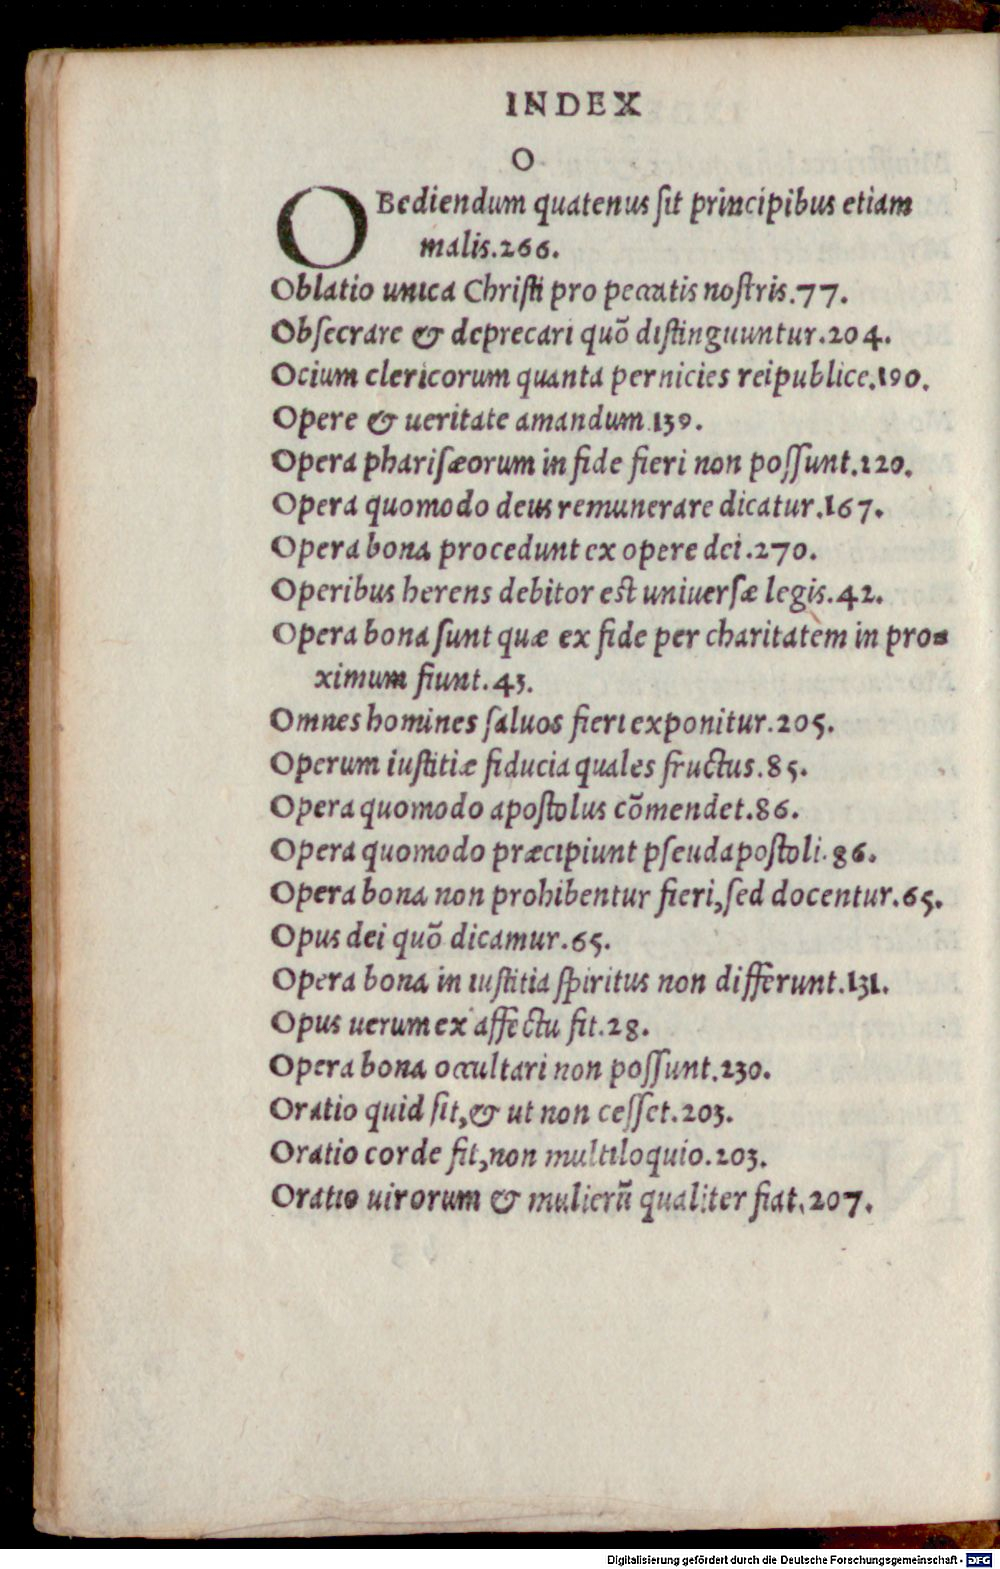 INDEX
O
OBediendum quatenus ſit principibus etiam
malis.266.
Oblatio unica Chriſti pro peccatis noſtris.77.
Obſecrare & deprecari quõ diſtinguuntur.204.
Ocium clericorum quanta pernicies reipublice.190.
Opere & ueritate amandum.139.
Opera phariſæorum in fide fieri non poſſunt.120.
Opera quomodo deus remunerare dicatur.167.
Opera bona procedunt ex opere dei.270.
Operibus herens debitor est uniuerſæ legis.42.
Opera bona ſunt quæ ex fide per charitatem in pro=
ximum fiunt.43.
Omnes homines ſaluos fieri exponitur.205.
Operum iuſtitiæ fiducia quales fructus.85.
Opera quomodo apoſtolus cõmendet.86.
Opera quomodo præcipiunt pſeudapoſtoli.86.
Opera bona non prohibentur fieri,ſed docentur.65.
Opus dei quõ dicamur.65.
Opera bona in iuſtitia ſpiritus non differunt.131.
Opus uerum ex affectu fit.28.
Opera bona occultari non poſſunt.230.
Oratio quid ſit,& ut non ceſſet.203.
Oratio corde fit,non multiloquio.203.
Oratio uirorum & mulierũ qualiter fiat.207.
Digitalisierung gefördert durch die Deutsche Forschungsgemeinschaft - DFG